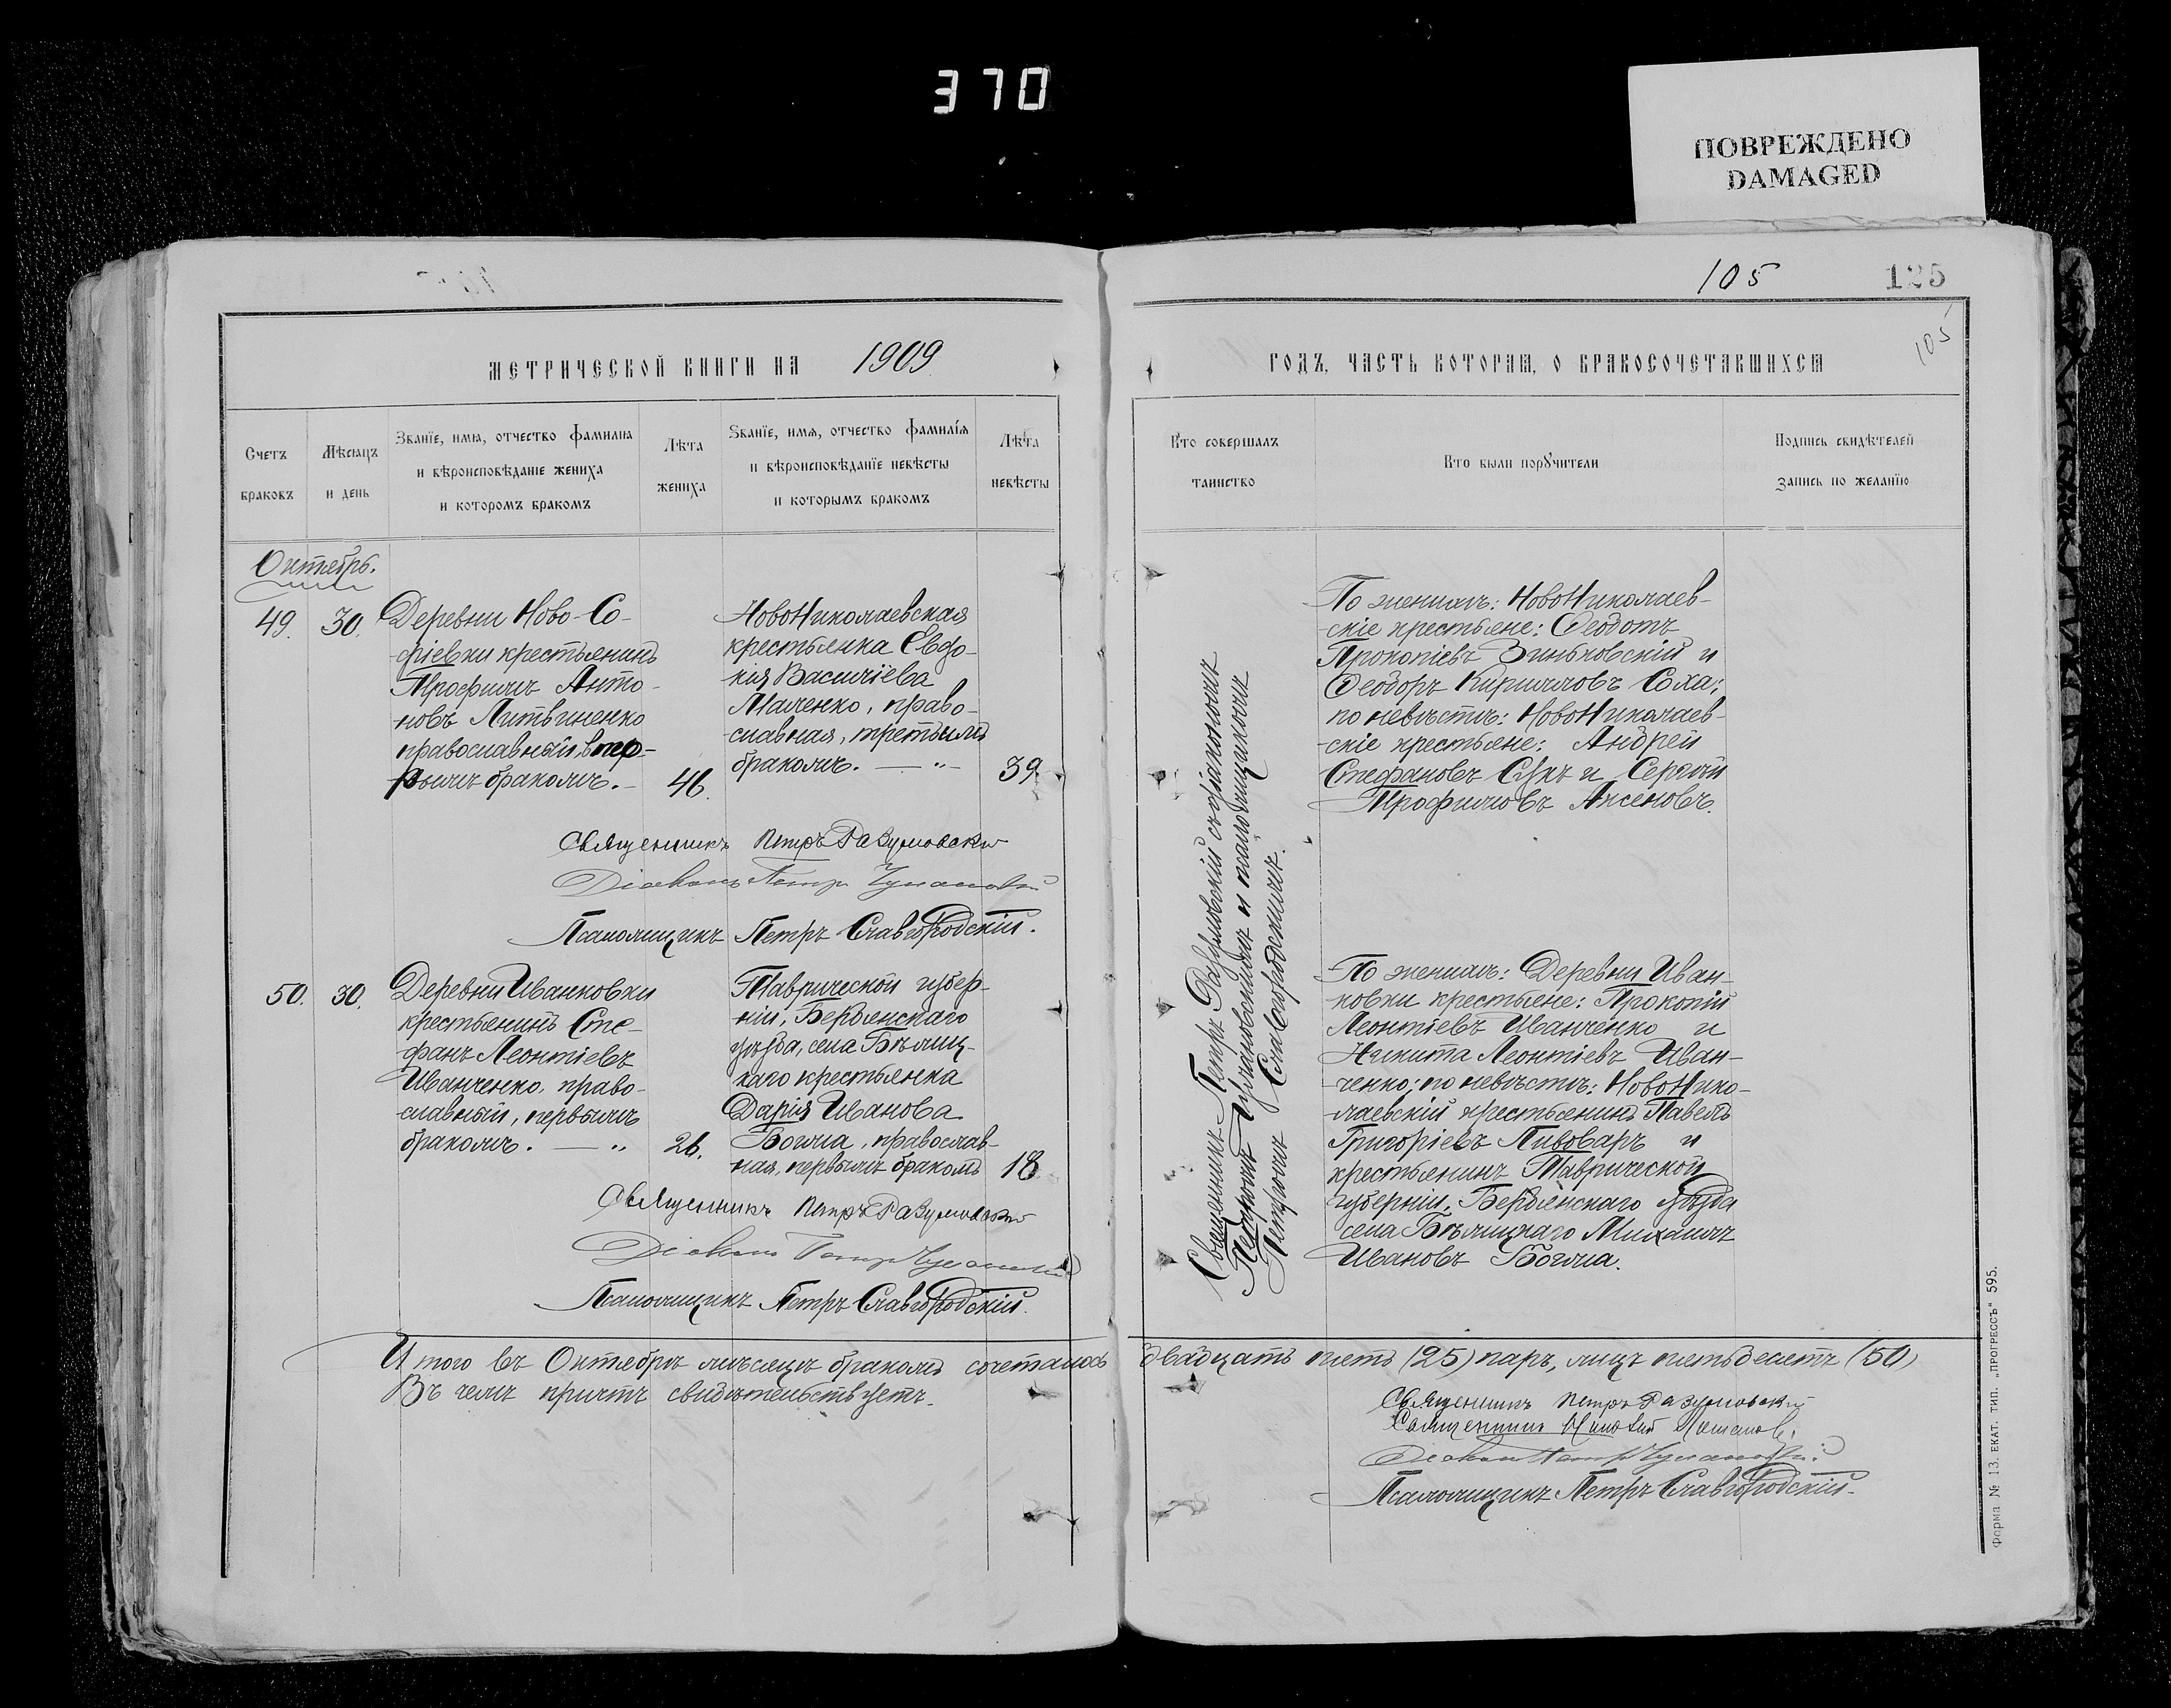 370
ПОВРЕЖДЕНО
DAMAGED
105
125
105
МЕТРИЧЕСКОЙ КНИГИ НА 1909
ГОДЪ, ЧАСТЬ КОТОРАЯ, О БРАКОСОЧЕТАВШИХСЯ
Счетъ
браковъ
Мѣсяцъ
и день
Званіе, имя, отчество фамилия
и вѣроисповѣданіе жениха
и которомъ бракомъ
Лѣта
жениха
Званіе, имя, отчество фамилія
и вѣроисповѣданіе невѣсты
и которымъ бракомъ
Лѣта
невѣсты
Кто совершалъ
таинство
Кто были поручители
Подпись свидѣтелей
запись по желанію
Октябрь.
49.
30.
Деревни Ново-Со-
фіевки крестьянинъ
Трофимъ Анто-
новъ Литвиненко
православный, втор-
рымъ бракомъ.
46.
НовоНиколаевская
крестьянка Евдо-
кія Василіева
Маленко, право-
славная, третьимъ
бракомъ. — „ —
39.
Священникъ Петръ Разумовскій
Діаконъ Петръ
Псаломщикъ Петръ Славгородскій.
50.
30.
Деревни Иванковки
крестьянинъ Сте-
фанъ Леонтіевъ
Иванченко, право-
славный, первымъ
бракомъ. — „
26.
Таврической губер-
ніи, Бердянскаго
уѣзда, села Бѣлиц-
каго крестьянка
Дарія Иванова
Богма, православ-
ная, первымъ бракомъ
18
Священникъ Петръ Разумовскій
Діаконъ Петръ
Псаломщикъ Петръ Славгородскій.
Священникъ Петръ Разумовскій съ діакономъ
Петромъ и псаломщикомъ
Петромъ Славгородскимъ.
По женихѣ: НовоНиколаев-
скіе крестьяне: Феодотъ
Прокопіевъ Зиньковскій и
Феодоръ Кирилловъ Соха;
по невѣстѣ: НовоНиколаев-
скіе крестьяне: Андрей
Стефановъ Сукъ и Сергѣй
Трофимовъ Аксеновъ.
По женихѣ: Деревни Иван-
ковки крестьяне: Прокопій
Леонтіевъ Иванченко и
Никита Леонтіевъ Иван-
ченко; по невѣстѣ: НовоНико-
лаевскій крестьянинъ Павелъ
Григоріевъ Пивоваръ и
крестьянинъ Таврической
губерніи, Бердянскаго уѣзда
села Бѣлицкаго Михаилъ
Ивановъ Богма.
Итого въ Октябрѣ мѣсяцѣ бракомъ сочеталось двадцать пять (25) паръ, лицъ пятьдесятъ (50)
Въ чемъ причтъ свидѣтельствуетъ.
Священникъ Петръ Разумовскій
Священникъ
Діаконъ Петръ
Псаломщикъ Петръ Славгородскій.
Форма № 13. ЕКАТ. ТИП. „ПРОГРЕССЪ“ 595.